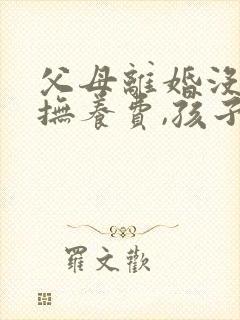 父母離婚沒
撫養費,孩子
羅文歡